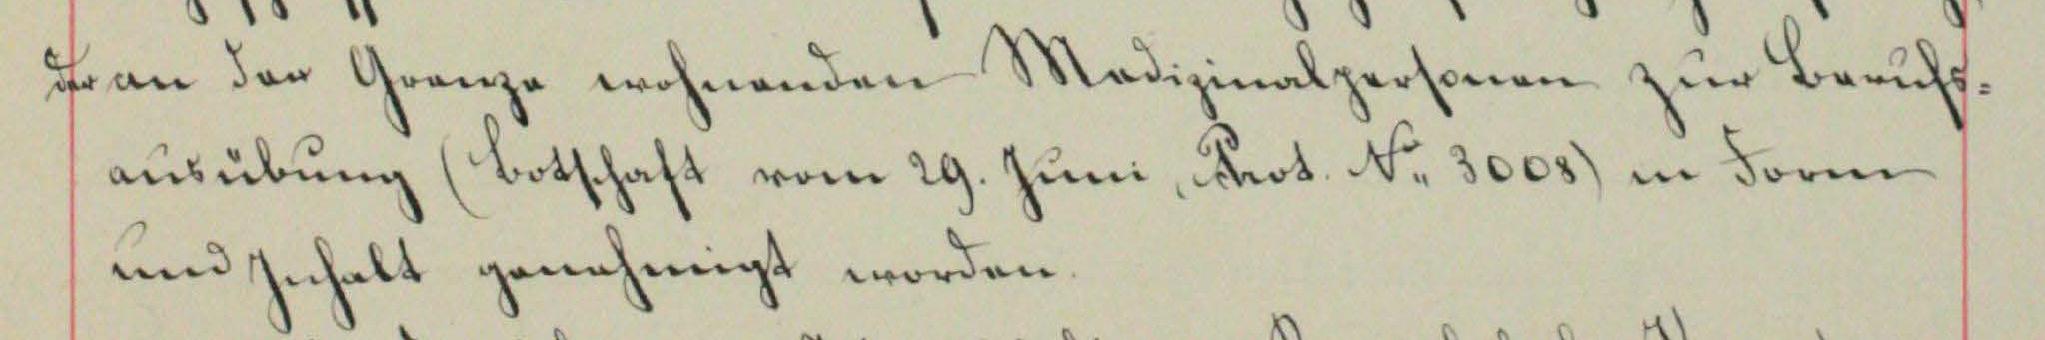 der an der Grenze wohnenden Medizinalpersonen zur Berufs-
ausübung (Botschaft vom 29. Juni, Prot. No. 3008) in Form
und Inhalt genehmigt worden.